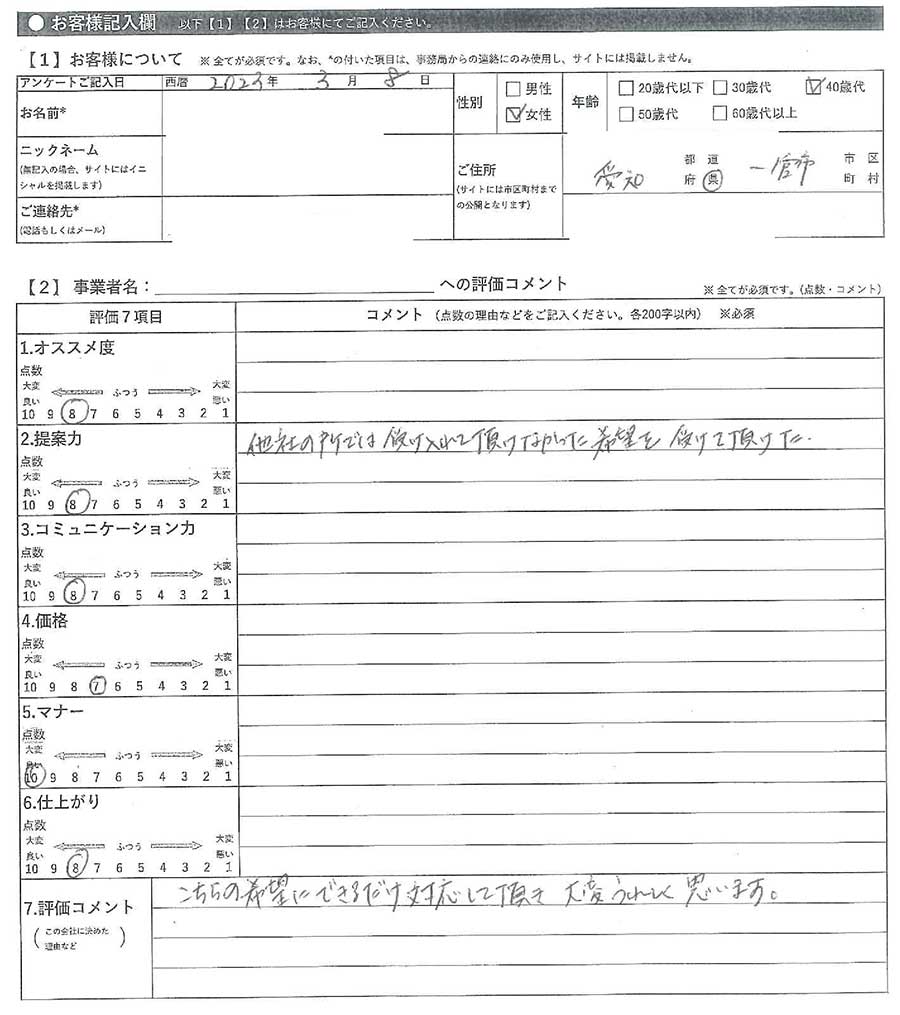 ● お客様記入欄 以下【1】【2】はお客様にてご記入ください。
【1】お客様について ※全てが必須です。なお、*の付いた項目は、事務局からの連絡にのみ使用し、サイトには掲載しません。
アンケートご記入日 西暦 2023年 3月 8日
お名前*
性別 男性 女性
年齢 20歳代以下 30歳代 40歳代 50歳代 60歳代以上
ニックネーム
(無記入の場合、サイトにはイニシャルを掲載します)
ご住所
(サイトには市区町村までの公開となります)
愛知 都道府県 一宮市 市区町村
ご連絡先*
(電話もしくはメール)
【2】事業者名: への評価コメント ※全てが必須です。(点数・コメント)
評価7項目 コメント (点数の理由などをご記入ください。各200字以内) ※必須
1.オススメ度
点数
大変良い ふつう 大変悪い
10 9 8 7 6 5 4 3 2 1
2.提案力 他社の所では受け入れて頂けなかった希望を受けて頂けた.
点数
大変良い ふつう 大変悪い
10 9 8 7 6 5 4 3 2 1
3.コミュニケーション力
点数
大変良い ふつう 大変悪い
10 9 8 7 6 5 4 3 2 1
4.価格
点数
大変良い ふつう 大変悪い
10 9 8 7 6 5 4 3 2 1
5.マナー
点数
大変良い ふつう 大変悪い
10 9 8 7 6 5 4 3 2 1
6.仕上がり
点数
大変良い ふつう 大変悪い
10 9 8 7 6 5 4 3 2 1
7.評価コメント
(この会社に決めた理由など)
こちらの希望にできるだけ対応して頂き 大変うれしく思います。